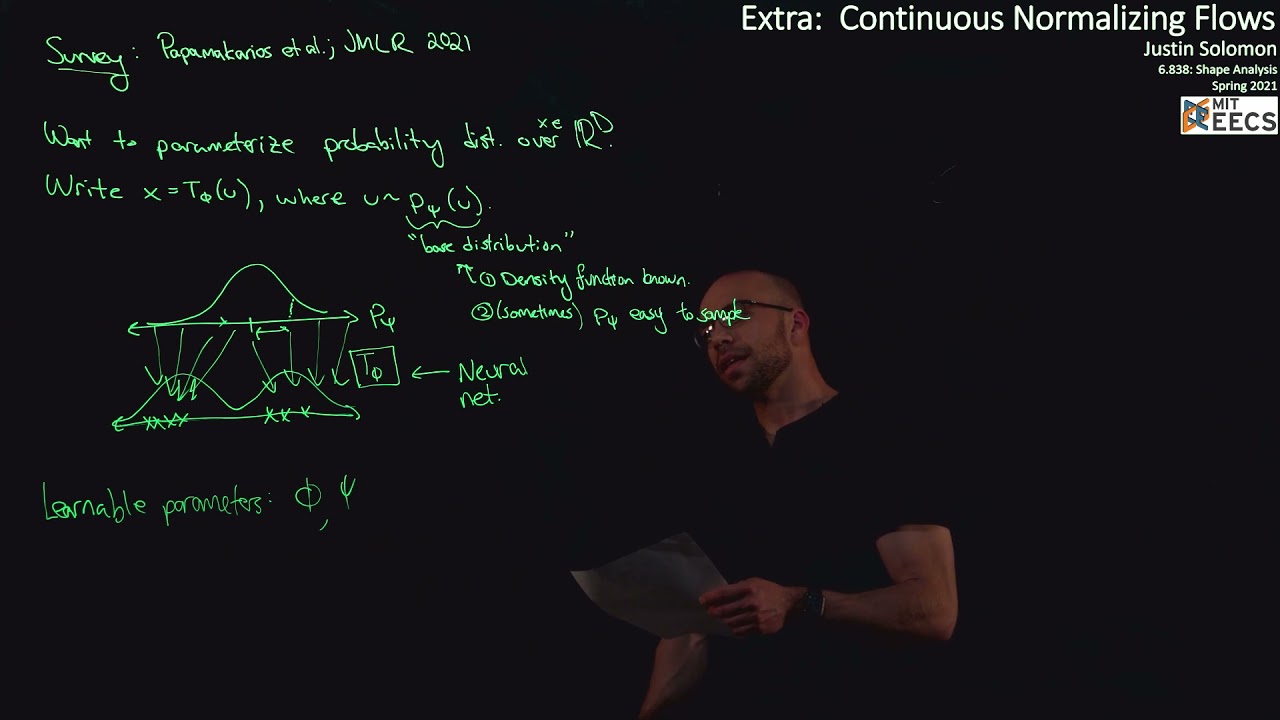 Extra: Continuous Normalizing Flows
Justin Solomon
6.838: Shape Analysis
Spring 2021
MIT
EECS
Survey: Papamakarios et al.; JMLR 2021
Want to parameterize probability dist. over x∈ ℝᴰ.
Write x = T_Φ(u), where u~ P_Ψ(u).
"base distribution"
↑ ① Density function known.
② (sometimes) P_Ψ easy to sample
P_Ψ
T_Φ ← Neural
net.
Learnable parameters: Φ, Ψ